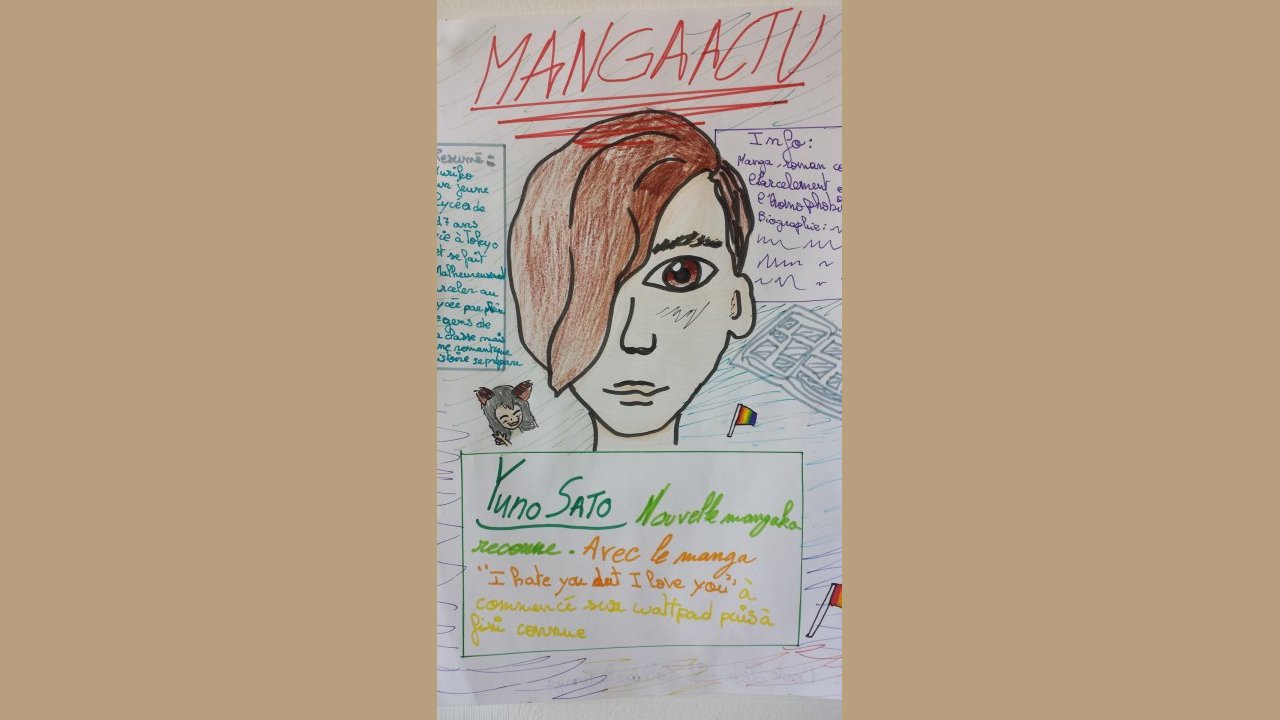 MANGAACTU
Resumé :
Yuriko
un jeune
lycéen de
17 ans
vie à Tokyo
et se fait
Malheureusement
arceler au
lycée par plein
gens de
classe mais
romantique
istoire se prépare
Info:
Manga, roman co
l'harcelement
l'homophobi
Biographie:
Yuno SATO Nouvelle mangaka
reconnue. Avec le manga
"I hate you but I love you" à
commencé sur wattpad puis à
fini connue